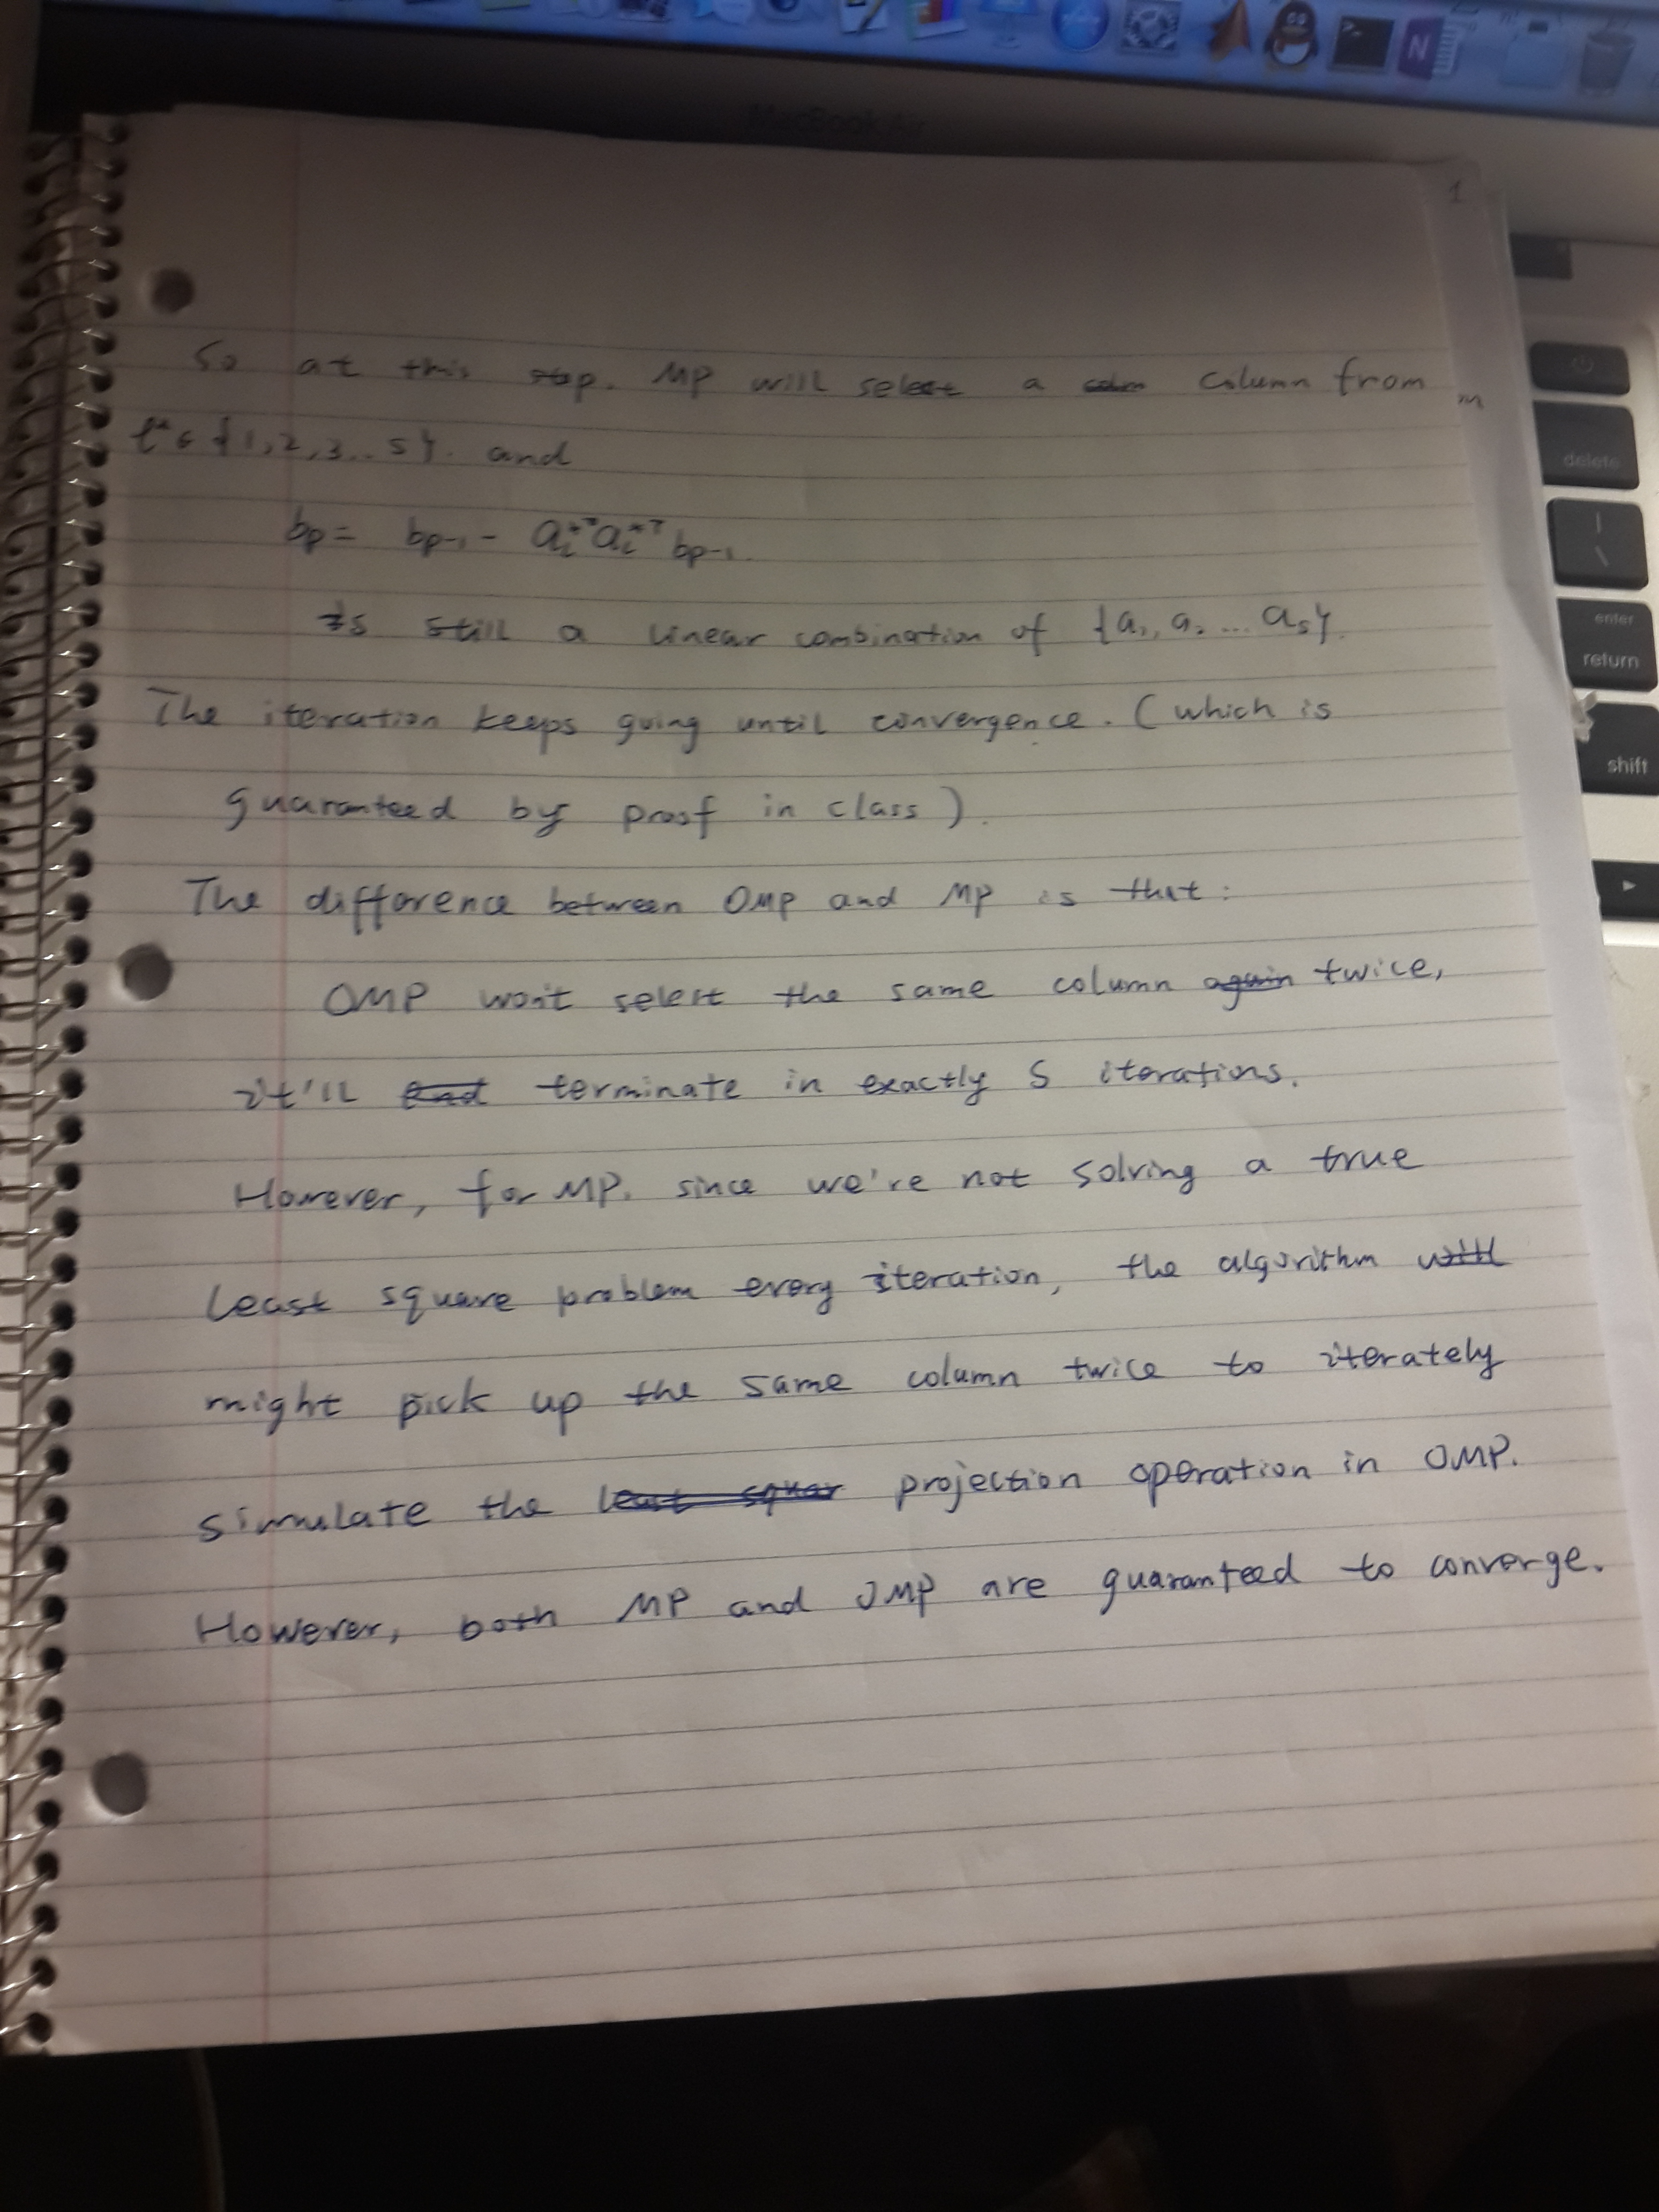 MacBook Air
1
So at this step. MP will select a column from
m
i* ∈ {1,2,3..s}. and
bp = bp-1 - ai*ai*T bp-1.
Is still a linear combination of {a1, a2 ... as}.
The iteration keeps going until convergence. (which is
guaranteed by proof in class).
The difference between OMP and MP is that:
OMP won't select the same column again twice,
it'll end terminate in exactly S iterations.
However, for MP. since we're not solving a true
least square problem every iteration, the algorithm will
might pick up the same column twice to iterately
simulate the least squar projection operation in OMP.
However, both MP and OMP are guaranteed to converge.
delete
|
\
enter
return
shift
N